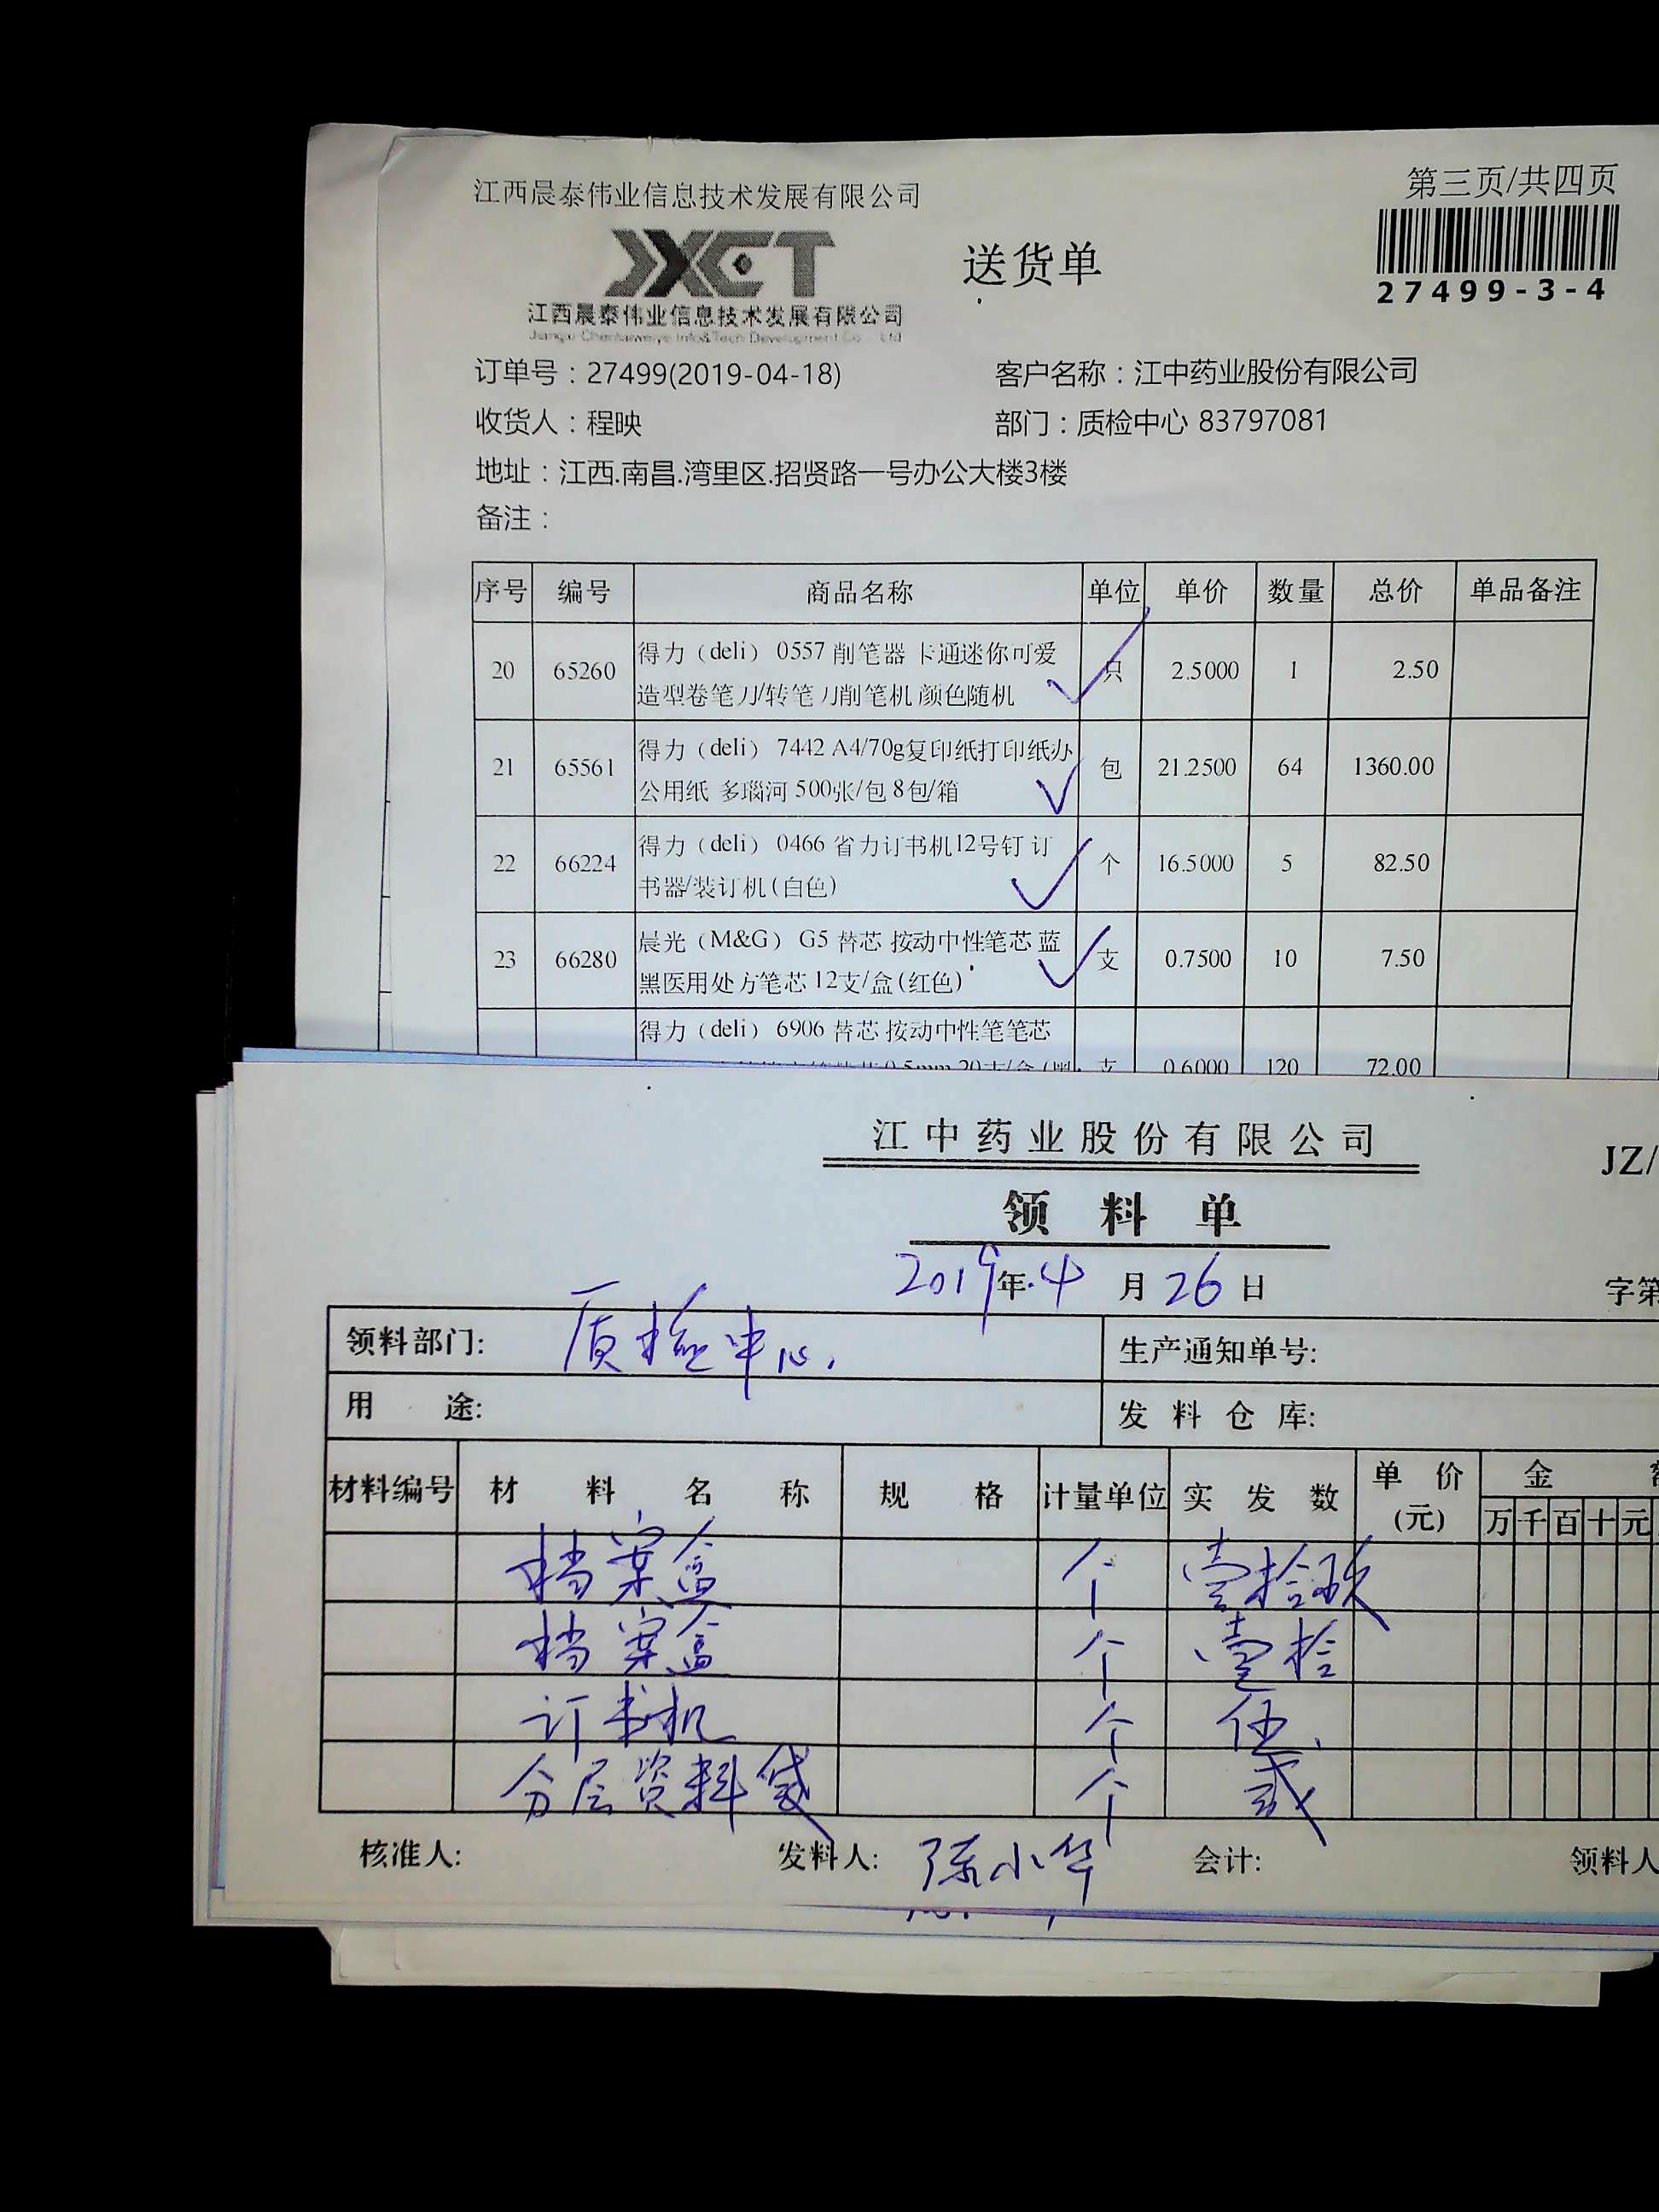 江西晨泰伟业信息技术发展有限公司
第三页/共四页
JXCT
江西晨泰伟业信息技术发展有限公司
送货单
27499-3-4
订单号：27499(2019-04-18) 客户名称：江中药业股份有限公司
收货人：程映 部门：质检中心 83797081
地址：江西.南昌.湾里区.招贤路一号办公大楼3楼
备注：
序号 编号 商品名称 单位 单价 数量 总价 单品备注
得力（deli） 0557 削笔器 卡通迷你可爱
20 65260 只 2.5000 1 2.50
造型卷笔刀/转笔刀削笔机 颜色随机
得力（deli） 7442 A4/70g复印纸打印纸办
21 65561 包 21.2500 64 1360.00
公用纸 多瑙河 500张/包 8包/箱
得力（deli） 0466 省力订书机12号钉 订
22 66224 个 16.5000 5 82.50
书器/装订机(白色)
晨光（M&G） G5 替芯 按动中性笔芯 蓝
23 66280 支 0.7500 10 7.50
黑医用处方笔芯 12支/盒(红色)
得力（deli） 6906 替芯 按动中性笔笔芯
0.5mm 20支/盒 支 0.6000 120 72.00
江中药业股份有限公司
JZ/
领料单
2019年4月26日
字第
领料部门: 质检中心. 生产通知单号:
用途: 发料仓库:
材料编号 材料名称 规格 计量单位 实发数 单价(元) 金
万 千 百 十 元
档案盒 个 壹拾玖
档案盒 个 壹拾
订书机 个 伍
分层资料袋 个 贰
核准人: 发料人: 陈小华 会计: 领料人